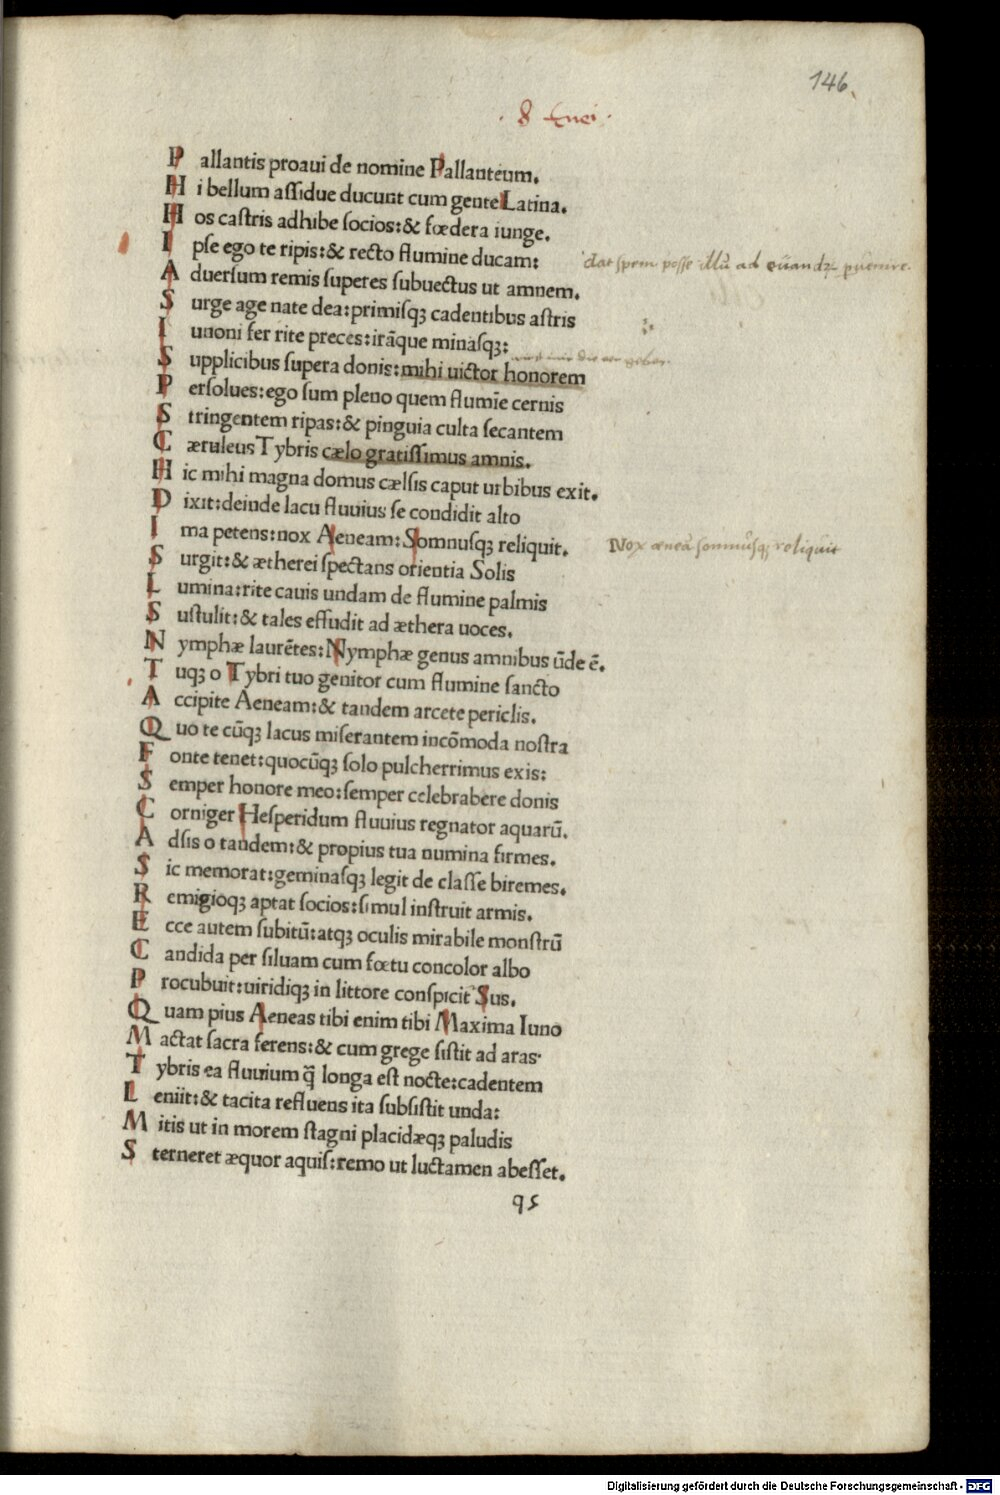 146
8 Enei
Pallantis proaui de nomine Pallanteum.
Hi bellum assidue ducunt cum gente Latina.
Hos castris adhibe socios:& fœdera iunge.
Ipse ego te ripis:& recto flumine ducam:
dat spem posse illũ ad euandꝝ puenire.
Aduersum remis superes subuectus ut amnem.
Surge age nate dea:primisqꝫ cadentibus astris
Iunoni fer rite preces:irãque minasqꝫ:
Supplicibus supera donis:mihi uictor honorem
Persolues:ego sum pleno quem flumĩe cernis
Stringentem ripas:& pinguia culta secantem
Cæruleus Tybris cælo gratissimus amnis.
Hic mihi magna domus cælsis caput urbibus exit.
Dixit:deinde lacu fluuius se condidit alto
Ima petens:nox Aeneam:Somnusqꝫ reliquit.
Nox æneã somnusqꝫ reliquit
Surgit:& ætherei spectans orientia Solis
Lumina:rite cauis undam de flumine palmis
Sustulit:& tales effudit ad æthera uoces.
Nymphæ laurẽtes:Nymphæ genus amnibus ũde ẽ.
Tuqꝫ o Tybri tuo genitor cum flumine sancto
Accipite Aeneam:& tandem arcete periclis.
Quo te cũqꝫ lacus miserantem incõmoda nostra
Fonte tenet:quocũqꝫ solo pulcherrimus exis:
Semper honore meo:semper celebrabere donis
Corniger Hesperidum fluuius regnator aquarũ.
Adsis o tandem:& propius tua numina firmes.
Sic memorat:geminasqꝫ legit de classe biremes.
Remigioqꝫ aptat socios:simul instruit armis.
Ecce autem subitũ:atqꝫ oculis mirabile monstrũ
Candida per siluam cum fœtu concolor albo
Procubuit:uiridiqꝫ in littore conspicit Sus.
Quam pius Aeneas tibi enim tibi Maxima Iuno
Mactat sacra ferens:& cum grege sistit ad aras·
Tybris ea fluuium q̃ longa est nocte:cadentem
Leniit:& tacita refluens ita subsistit unda:
Mitis ut in morem stagni placidæqꝫ paludis
Sterneret æquor aquis:remo ut luctamen abesset.
q5
Digitalisierung gefördert durch die Deutsche Forschungsgemeinschaft - DFG